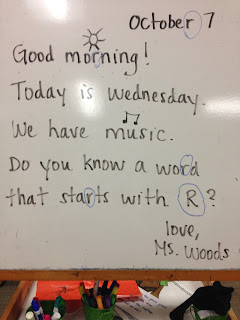 October 7
Good morning!
Today is Wednesday.
We have music.
Do you know a word
that starts with R?
love,
Ms. Woods